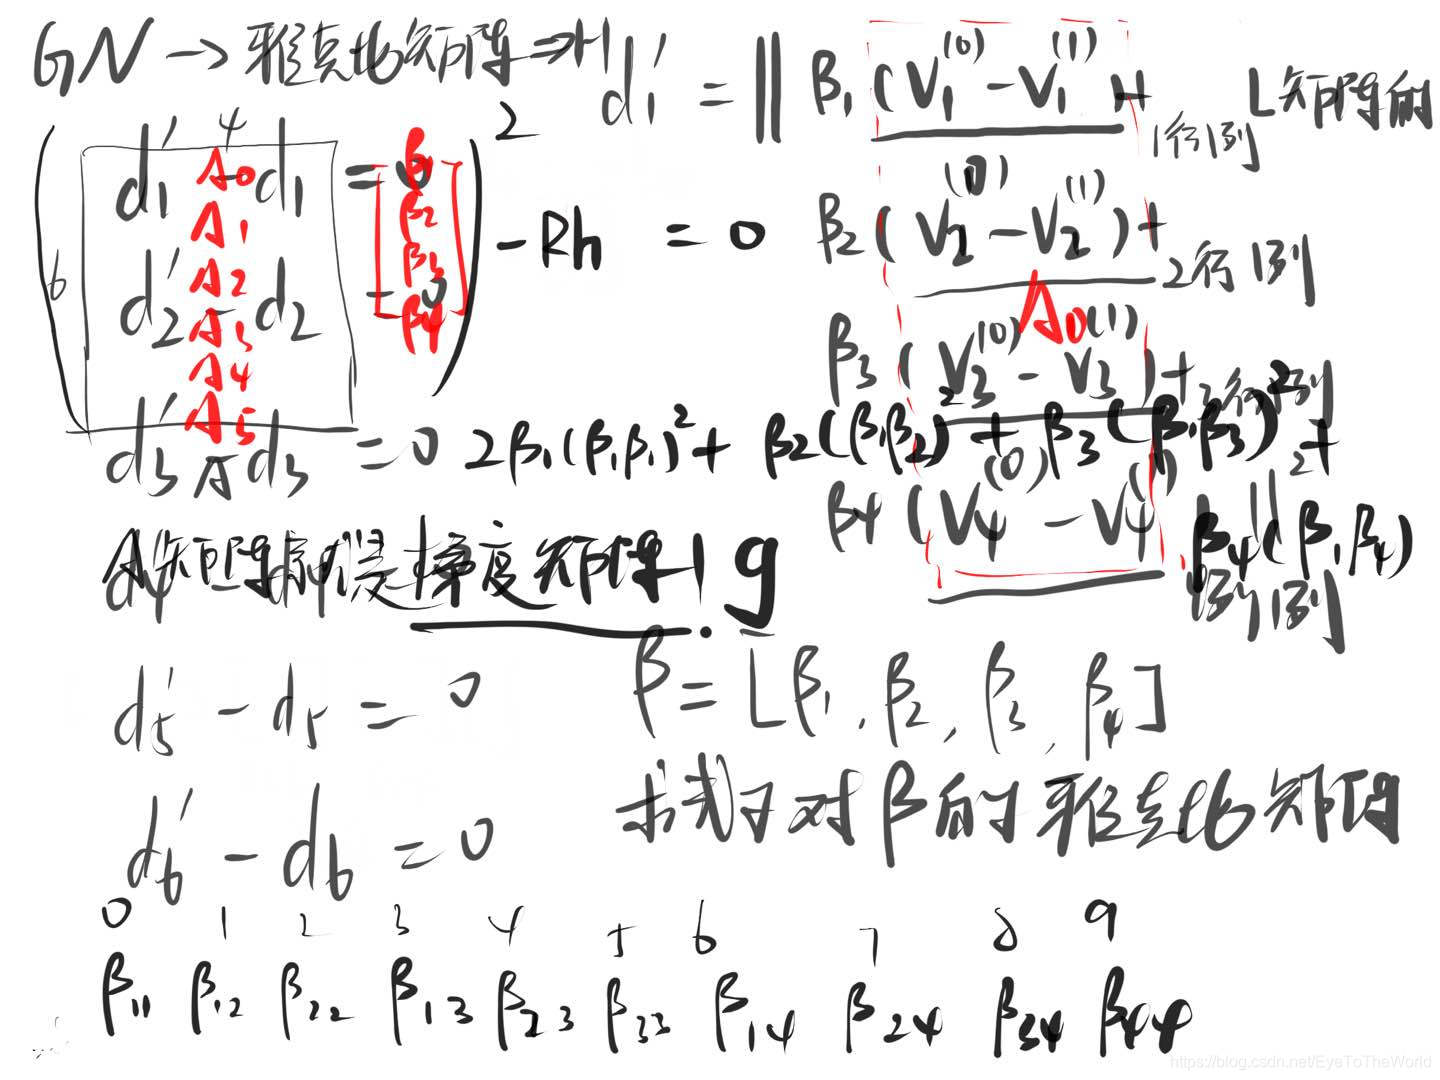 GN → 雅克比矩阵 ⇒ H
d₁' = ‖ β₁(V₁⁽⁰⁾ - V₁⁽¹⁾)+ 1行1列 L矩阵的
β₂(V₂⁽⁰⁾ - V₂⁽¹⁾)+ 2行1列
β₃(V₃⁽⁰⁾ - V₃⁽¹⁾)+
β₄(V₄⁽⁰⁾ - V₄⁽¹⁾)‖²
A₀
4
6
d₁' - d₁ = 0
d₂' - d₂ = 0
A₀
A₁
A₂
A₃
A₄
A₅
β₁
β₂
β₃
β₄
2
- Rh = 0
d₃' - d₃ = 0
2β₁(β₁β₁)² + β₂(β₁β₂)² + β₃(β₁β₃)² +
β₄(β₁β₄)
1列
A矩阵 梯度矩阵! g
d₅' - d₅ = 0
β = [β₁, β₂, β₃, β₄]
求式子对β的雅克比矩阵
d₆' - d₆ = 0
0 1 2 3 4 5 6 7 8 9
β₁₁ β₁₂ β₂₂ β₁₃ β₂₃ β₃₃ β₁₄ β₂₄ β₃₄ β₄₄
https://blog.csdn.net/EyeToTheWorld